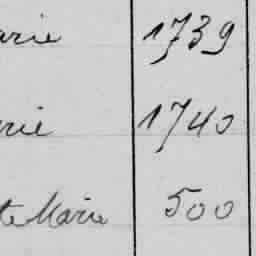 arie 1739
arie 1740
te Marie 500